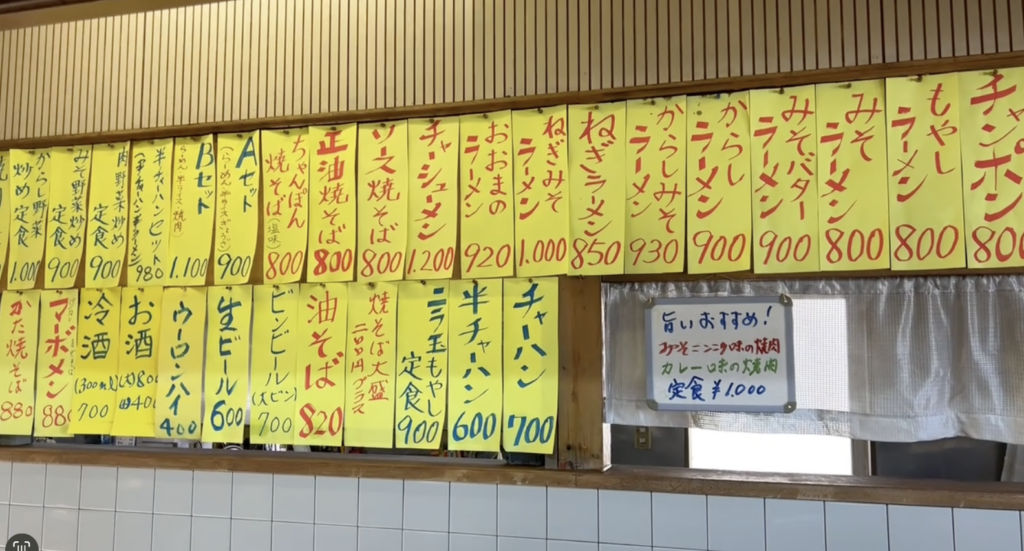 チャンポン
800
もやし
ラーメン
800
みそ
ラーメン
800
みそバター
ラーメン
900
からし
ラーメン
900
からしみそ
ラーメン
930
ねぎラーメン
850
ねぎみそ
ラーメン
1.000
おおまの
ラーメン
920
チャーシューメン
1.200
ソース焼そば
800
正油焼そば
800
ちゃんぽん
焼そば(塩味)
800
Aセット
900
Bセット
らーめん 半ライス 焼肉
1.100
半チャーハンセット
980
肉野菜炒め
定食
900
みそ野菜炒め
定食
900
からし野菜
炒め定食
1.000
チャーハン
700
半チャーハン
600
ニラ玉もやし
定食
900
焼そば大盛
二百円プラス
油そば
820
ビンビール
(大ビン)
700
生ビール
600
ウーロンハイ
400
お酒
(大)800
冷酒
(300ml)
700
マーボメン
880
かた焼そば
880
旨いおすすめ!
みそニンニク味の焼肉
カレー味の焼肉
定食 ¥1.000